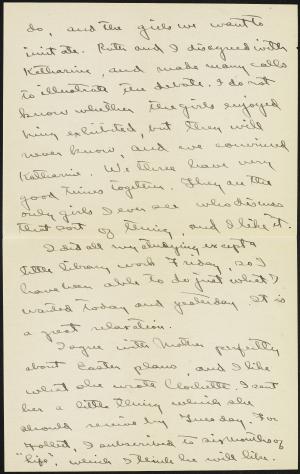 do, and the girls we want to
imitate. Ruth and I disagreed with
Katharine, and made many calls
to illustrate the debate. I do not
know whether the girls enjoyed
being exhibited, but they will
never know, and we convinced
Katharine. We three have very
good times together. They are the
only girls I ever see who discuss
that sort of thing, and I like it.
I did all my studying except a
little library work Friday, so I
have been able to do just what I
wanted today and yesterday. It is
a great relaxation.
I agree with Mother perfectly
about Easter plans, and I like
what she wrote Clochette. I sent
her a little thing which she
should receive by Tuesday. For
Follett, I subscribed to six months of
"Life", which I think he will like.